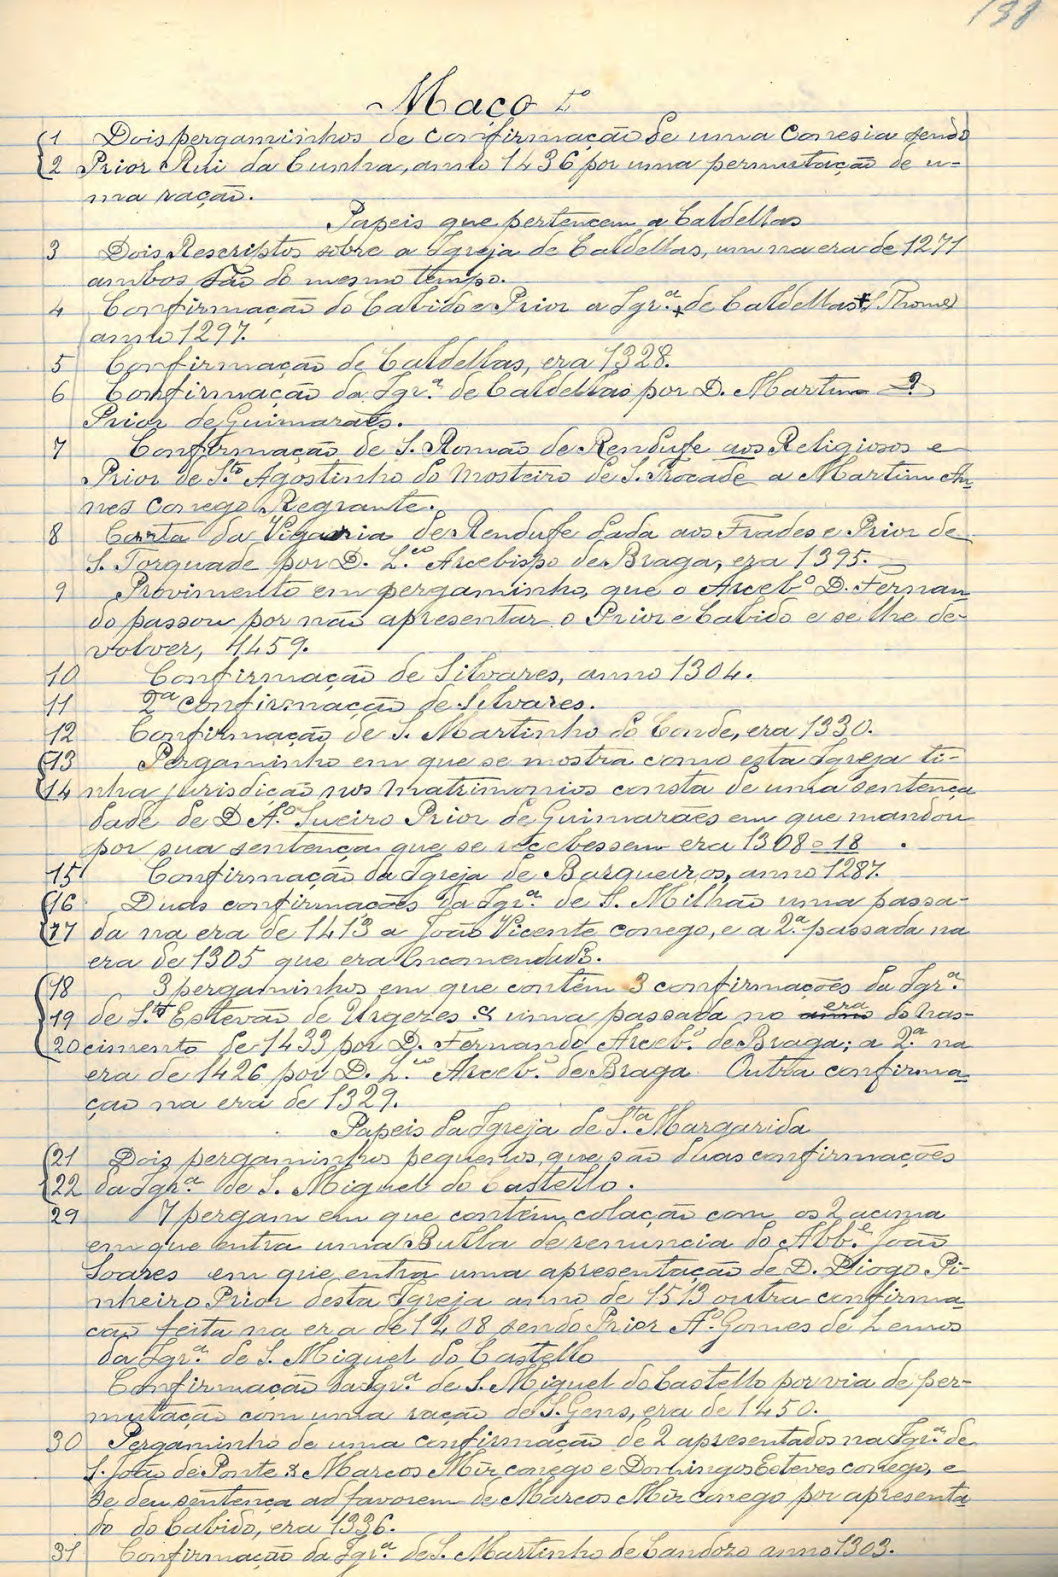 138
Maço 1º
1 Dois pergaminhos de confirmação de uma Conesia sendo
2 Prior Rui da Cunha, anno 1436 por uma permutação de u-
ma ração.
Papeis que pertencem a Caldellas
3 Dois Rescriptos sobre a Igreja de Caldellas, um na era de 1271
ambos são do mesmo tempo.
4 Confirmação do Cabido e Prior a Igr.ª de Caldellas (S. Thomé)
anno 1297.
5 Confirmação de Caldellas, era 1328.
6 Confirmação da Igr.ª de Caldellas por D. Martim ?
Prior de Guimarães.
7 Confirmação de S. Romão de Rendufe aos Religiosos e
Prior de S.to Agostinho do Mosteiro de S. Trocade a Martim An-
nes Conego Regrante.
8 Carta da Vigairia de Rendufe dada aos Frades e Prior de
S. Torquade por D. L.ço Arcebispo de Braga, era 1395.
9 Provimento em pergaminho, que o Arceb.º D. Fernan
do passou por não apresentar o Prior e Cabido e se lhe de-
volver, 1459.
10 Confirmação de Silvares, anno 1304.
11 2ª confirmação de Silvares.
12 Confirmação de S. Martinho do Conde, era 1330.
13 Pergaminho em que se mostra como esta Igreja ti-
14 nha jurisdição nos matrimonios consta de uma sentença
dade de D Aº. Sueiro Prior de Guimarães em que mandou
por sua sentença que se recebessem era 1308=18.
15 Confirmação da Igreja de Barqueiros, anno 1287.
16 Duas confirmações da Igr.ª de S. Milhão uma passa-
17 da na era de 1413 a João Vicente conego, e a 2.ª passada na
era de 1305 que era Encomendado.
18 3 pergaminhos em que contêm 3 confirmações da Igr.ª
19 de S.to Estevão de Urgezes & uma passada no anno era do nas-
20 cimento de 1433 por D. Fernando Arceb.º de Braga; a 2.ª na
era de 1426 por D. L.ço Arceb.º de Braga Outra confirma-
ção na era de 1329.
Papeis da Igreja de S.ta Margarida
21 Dois pergaminhos pequenos, que são duas confirmações
22 da Igr.ª de S. Miguel do Castello.
29 7 pergam em que contém colação com os 2 acima
em que entra uma Bulla de renuncia do Abb.e João
Soares em que entra uma apresentação de D. Diogo Pi-
nheiro Prior desta Igreja anno de 1513 outra confirma-
ção feita na era de 1408 sendo Prior Aº. Gomes de Lemos
da Igr.ª de S. Miguel do Castello
Confirmação da Igr.ª de S. Miguel do Castello por via de per-
mutação com uma ração de S. Gens, era de 1450.
30 Pergaminho de uma confirmação de 2 apresentados na Igr.ª de
S. João de Ponte & Marcos Mir conego e Domingos Esteves conego, e
se deu sentença ad favorem de Marcos Mir conego por apresenta
do do Cabido, era 1336.
31 Confirmação da Igr.ª de S. Martinho de Candozo anno 1303.